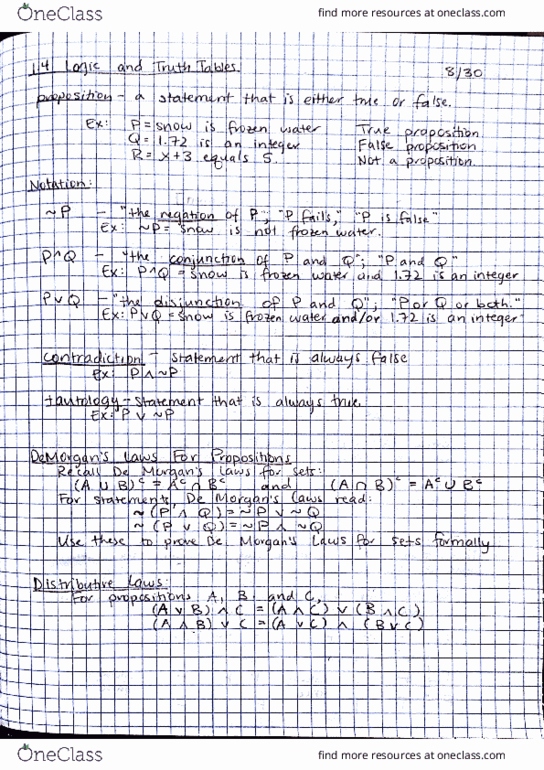 OneClass
find more resources at oneclass.com
1.4 Logic and Truth Tables 8/30
proposition - a statement that is either true or false.
Ex: P = snow is frozen water True proposition
Q = 1.72 is an integer False proposition
R = x+3 equals 5. Not a proposition.
Notation:
~P - "the negation of P", "P fails," "P is false"
Ex: ~P = snow is not frozen water.
P^Q - "the conjunction of P and Q"; "P and Q"
Ex: P∧Q = snow is frozen water and 1.72 is an integer
P∨Q - "the disjunction of P and Q"; "P or Q or both."
Ex: P∨Q = snow is frozen water and/or 1.72 is an integer"
contradiction - statement that is always false
Ex: P ∧ ~P
tautology - statement that is always true.
Ex: P ∨ ~P
DeMorgan's Laws For Propositions
Recall De Morgan's Laws for sets:
(A ∪ B)ᶜ = Aᶜ ∩ Bᶜ and (A ∩ B)ᶜ = Aᶜ ∪ Bᶜ
For statements, De Morgan's Laws read:
~ (P ∧ Q) = ~P ∨ ~Q
~ (P ∨ Q) = ~P ∧ ~Q
Use these to prove De Morgan's Laws for sets formally
Distributive Laws
For propositions A, B, and C,
(A ∨ B) ∧ C = (A ∧ C) ∨ (B ∧ C)
(A ∧ B) ∨ C = (A ∨ C) ∧ (B ∨ C)
OneClass
find more resources at oneclass.com